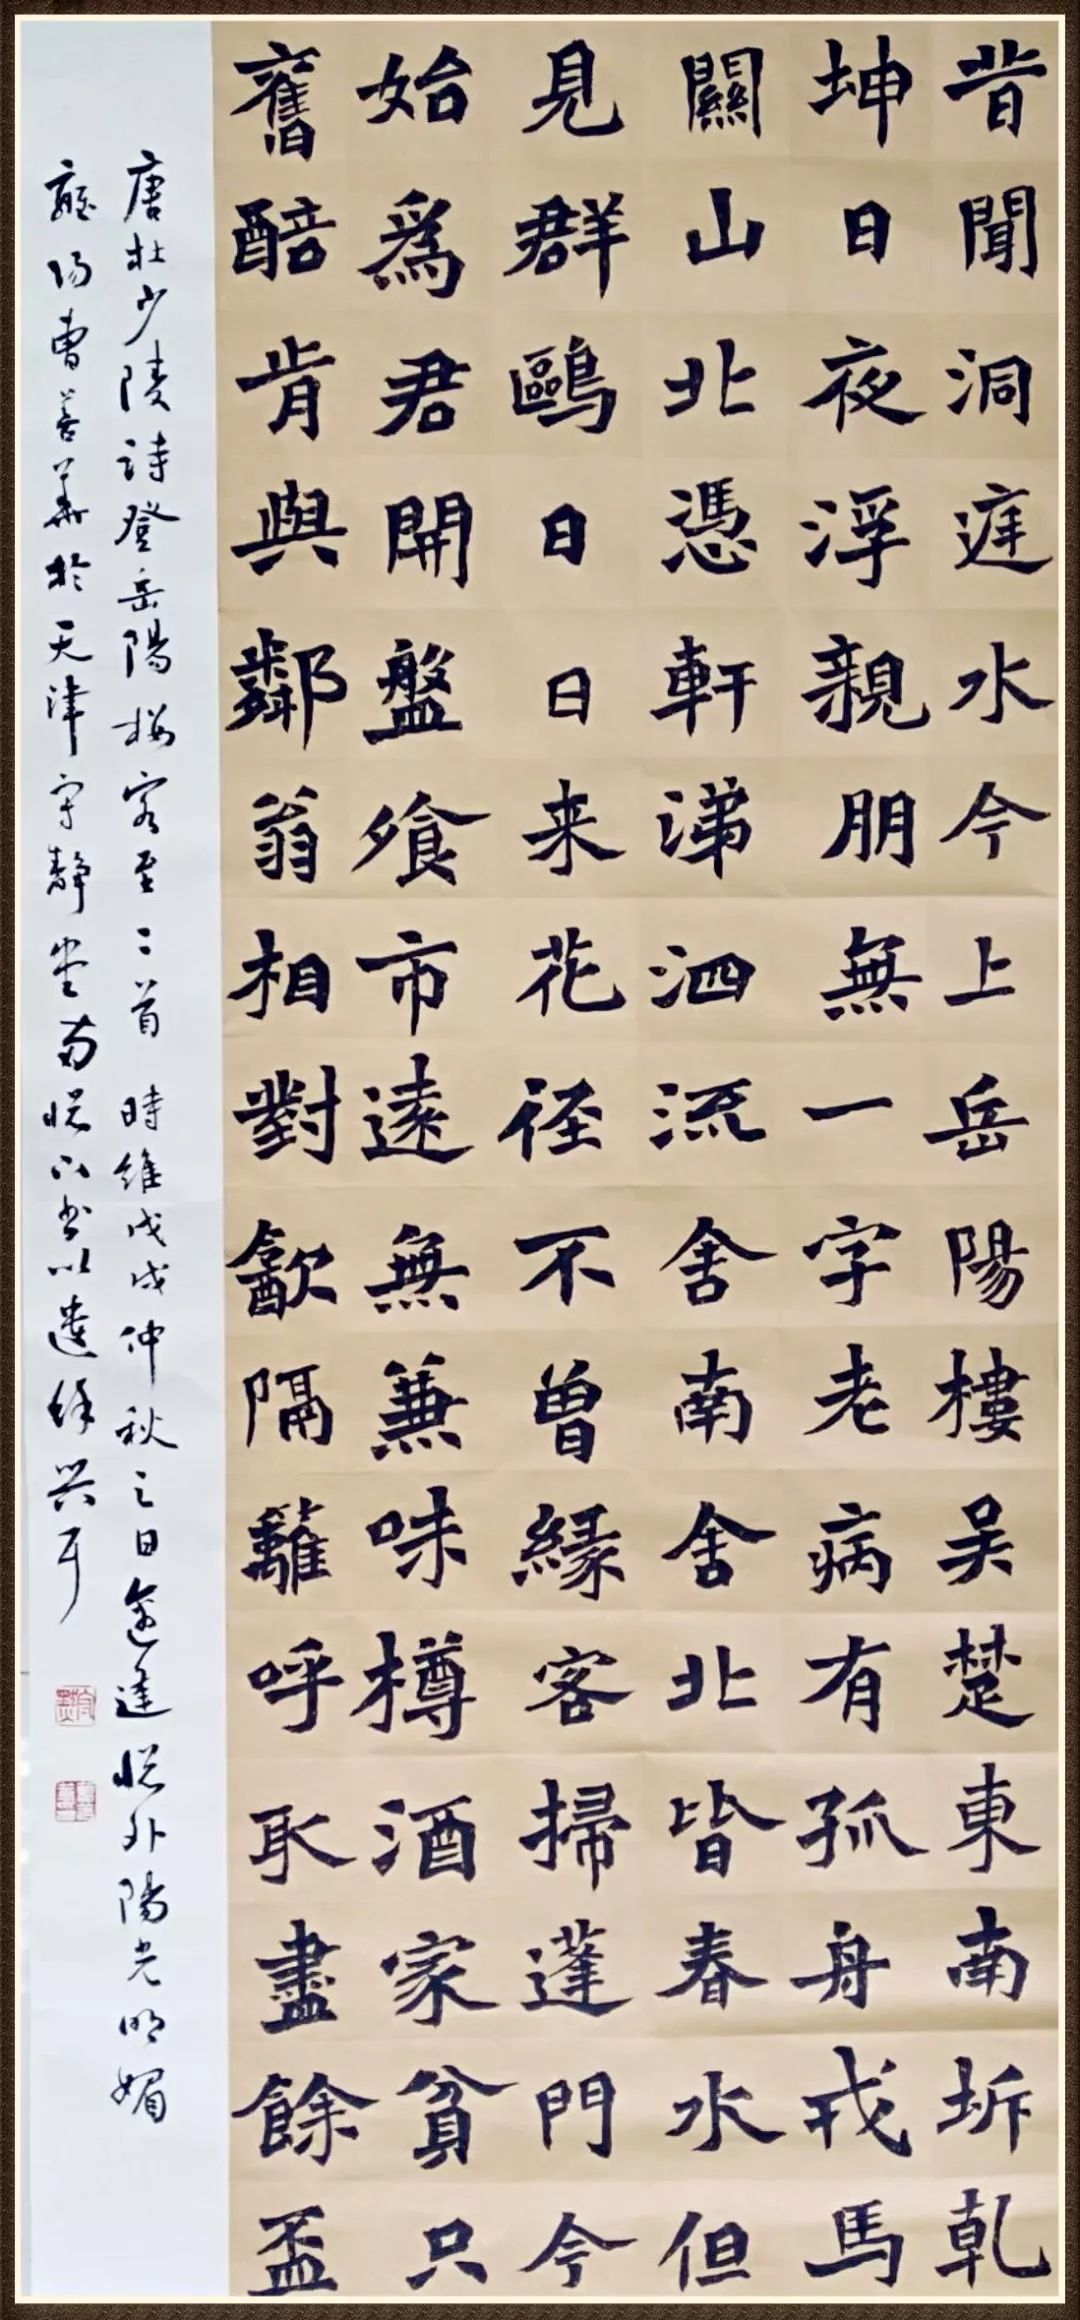 昔聞洞庭水今上岳陽樓吴楚東南坼乹
坤日夜浮親朋無一字老病有孤舟戎馬
關山北憑軒涕泗流舍南舍北皆春水但
見群鷗日日来花径不曾緣客掃蓬門今
始爲君開盤飧市遠無兼味樽酒家貧只
舊醅肯與鄰翁相對飲隔籬呼取盡餘盃
唐杜少陵詩登岳陽樓客至二首時維戊戌仲秋之日窗外陽光明媚
曹善華於天津宁静堂南窗下书以遣余兴耳